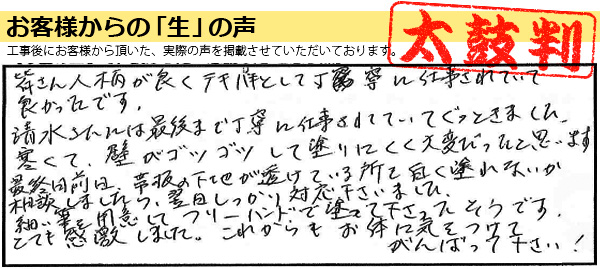 お客様からの「生」の声
工事後にお客様から頂いた、実際の声を掲載させていただいております。
太鼓判
皆さん人柄が良くテキパキとして丁寧に仕事されていて
良かったです。
清水さんには最後まで丁寧に仕事されていてぐっときました。
寒くて、壁がゴツゴツして塗りにくく大変だったと思います
最終日前日、帯板の下地が透けている所を白く塗れないか
相談しましたら、翌日しっかり対応下さいました。
細い筆を用意してフリーハンドで塗って下さったそうです。
とても感激しました。これからもお体に気をつけて
がんばって下さい!